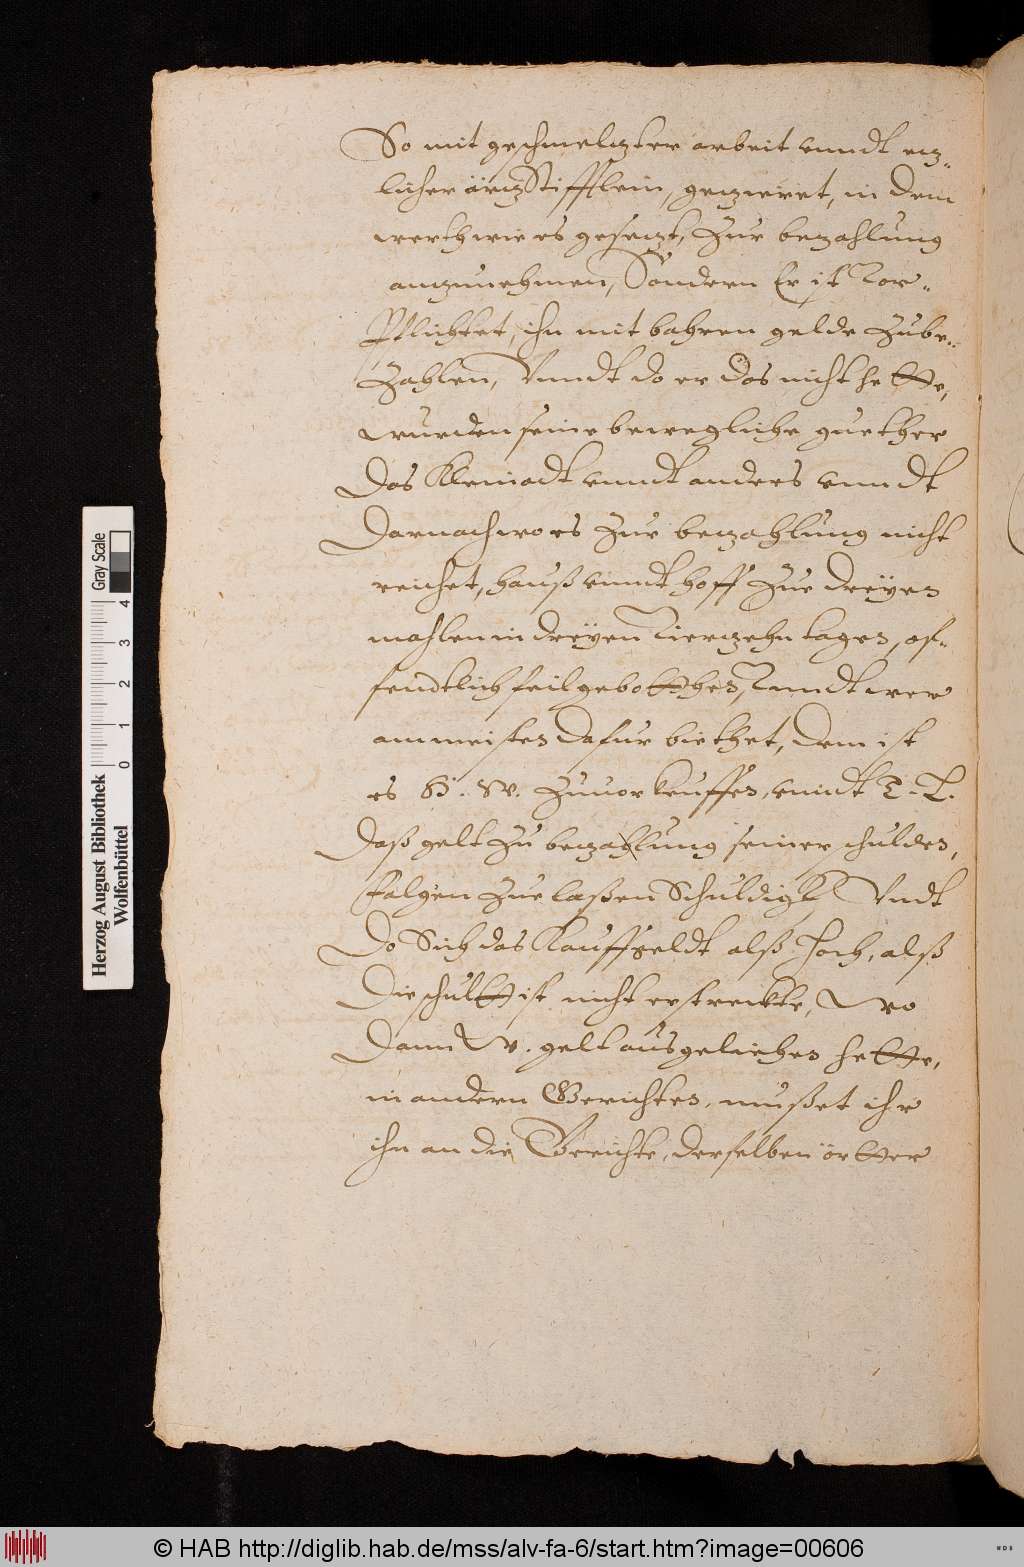 So mit geschmeltzter arbeit vnndt etz-
licher örtz Stifftlein, geziret, in dem
werth wie es gesetzt, zur bezahlung
anzunehmen, Sondern Er ist vor-
Pflichtet, ihn mit bahren gelde zube-
Zahlen, Vnndt do er das nicht hette,
wurden seine bewegliche guether
Das Kleinadt vnndt anders vnndt
Darnach wo es Zur bezahlung nicht
reichet, hauß vnndt hoff zue dreÿen
mahlen in dreÿen Vierzehn tagen, of-
fendtlich feil gebotthen, Vnndt wer
am meisten dafur biethet, dem ist
es H. W. Zuuorkeuffen, vnndt T. L.
Daß gelt Zu bezahlung seiner schulden,
folgen Zue laßen Schuldigk Vndt
Do Sich das Kauffgeldt alß hoch, alß
Die schultt ist nicht erstreckte, Wo
Dann W. gelt ausgeliehen hette,
in andern Gerichten, mußet ihr
ihn an die Gerichte, derselben örtter
Herzog August Bibliothek
Wolfenbüttel
0 1 2 3 4
Gray Scale
© HAB http://diglib.hab.de/mss/alv-fa-6/start.htm?image=00606
WDB